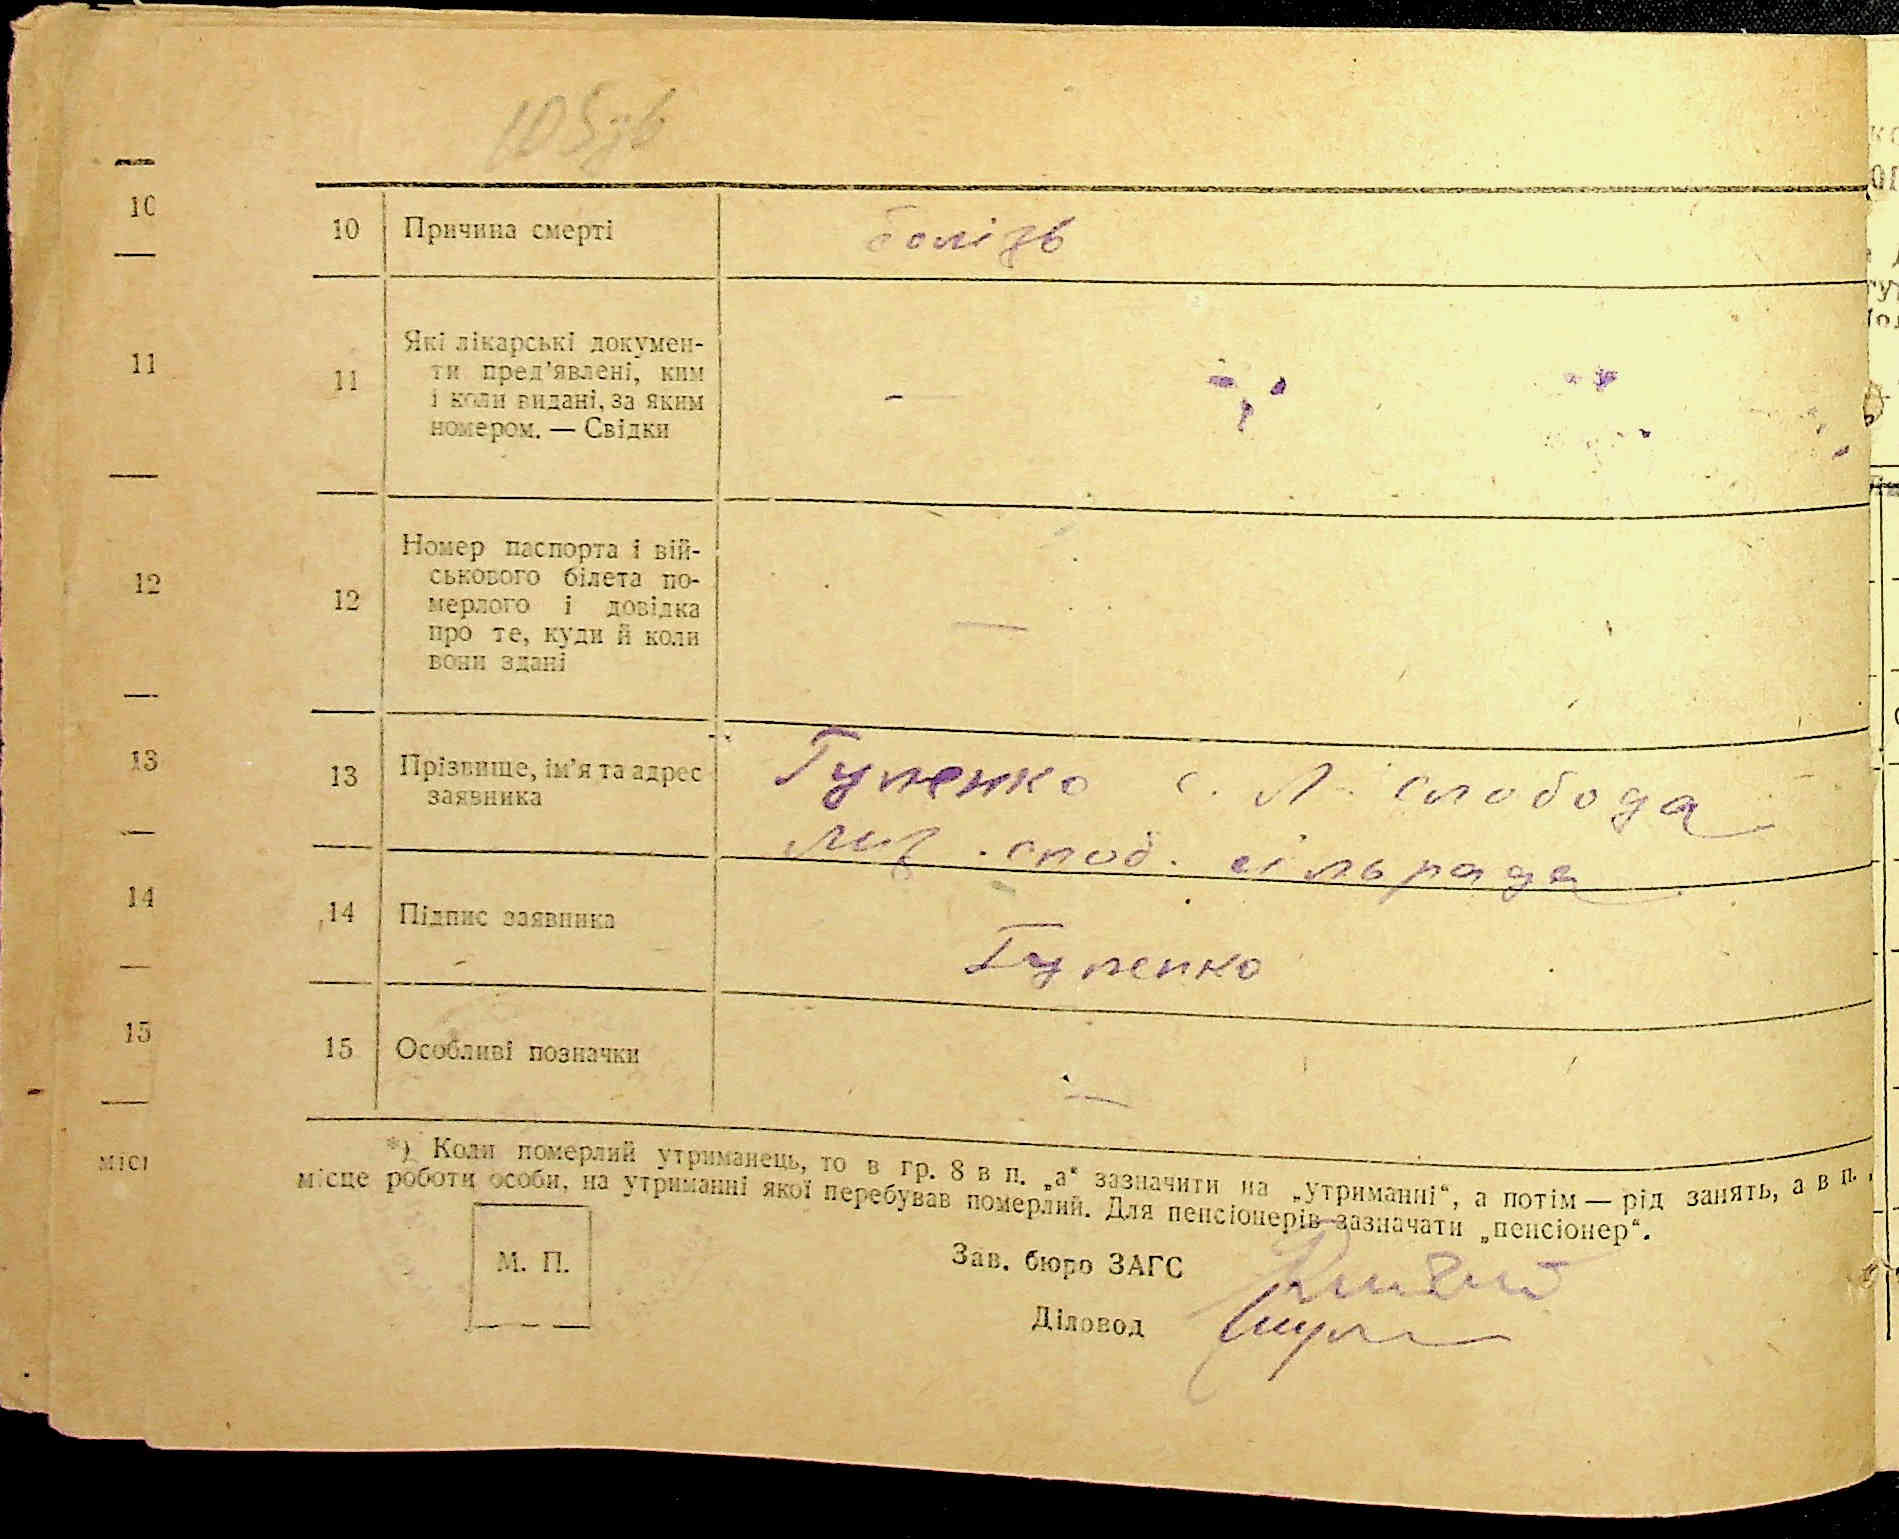 105зв
10
10 Причина смерті болізь
11
11 Які лікарські докумен-
ти пред'явлені, ким
і коли видані, за яким
номером. — Свідки
—
12
12 Номер паспорта і вій-
ськового білета по-
мерлого і довідка
про те, куди й коли
вони здані
—
13
13 Прізвище, ім'я та адрес
заявника
Гупенко с. Л. Слобода
Лиз. слоб. сільрада
14
14 Підпис заявника
Гупенко
15
15 Особливі позначки
—
місц
*) Коли померлий утриманець, то в гр. 8 в п. „а“ зазначити на „утриманні“, а потім — рід занять, а в п.
місце роботи особи, на утриманні якої перебував померлий. Для пенсіонерів зазначати „пенсіонер“.
М. П.
Зав. бюро ЗАГС
Діловод